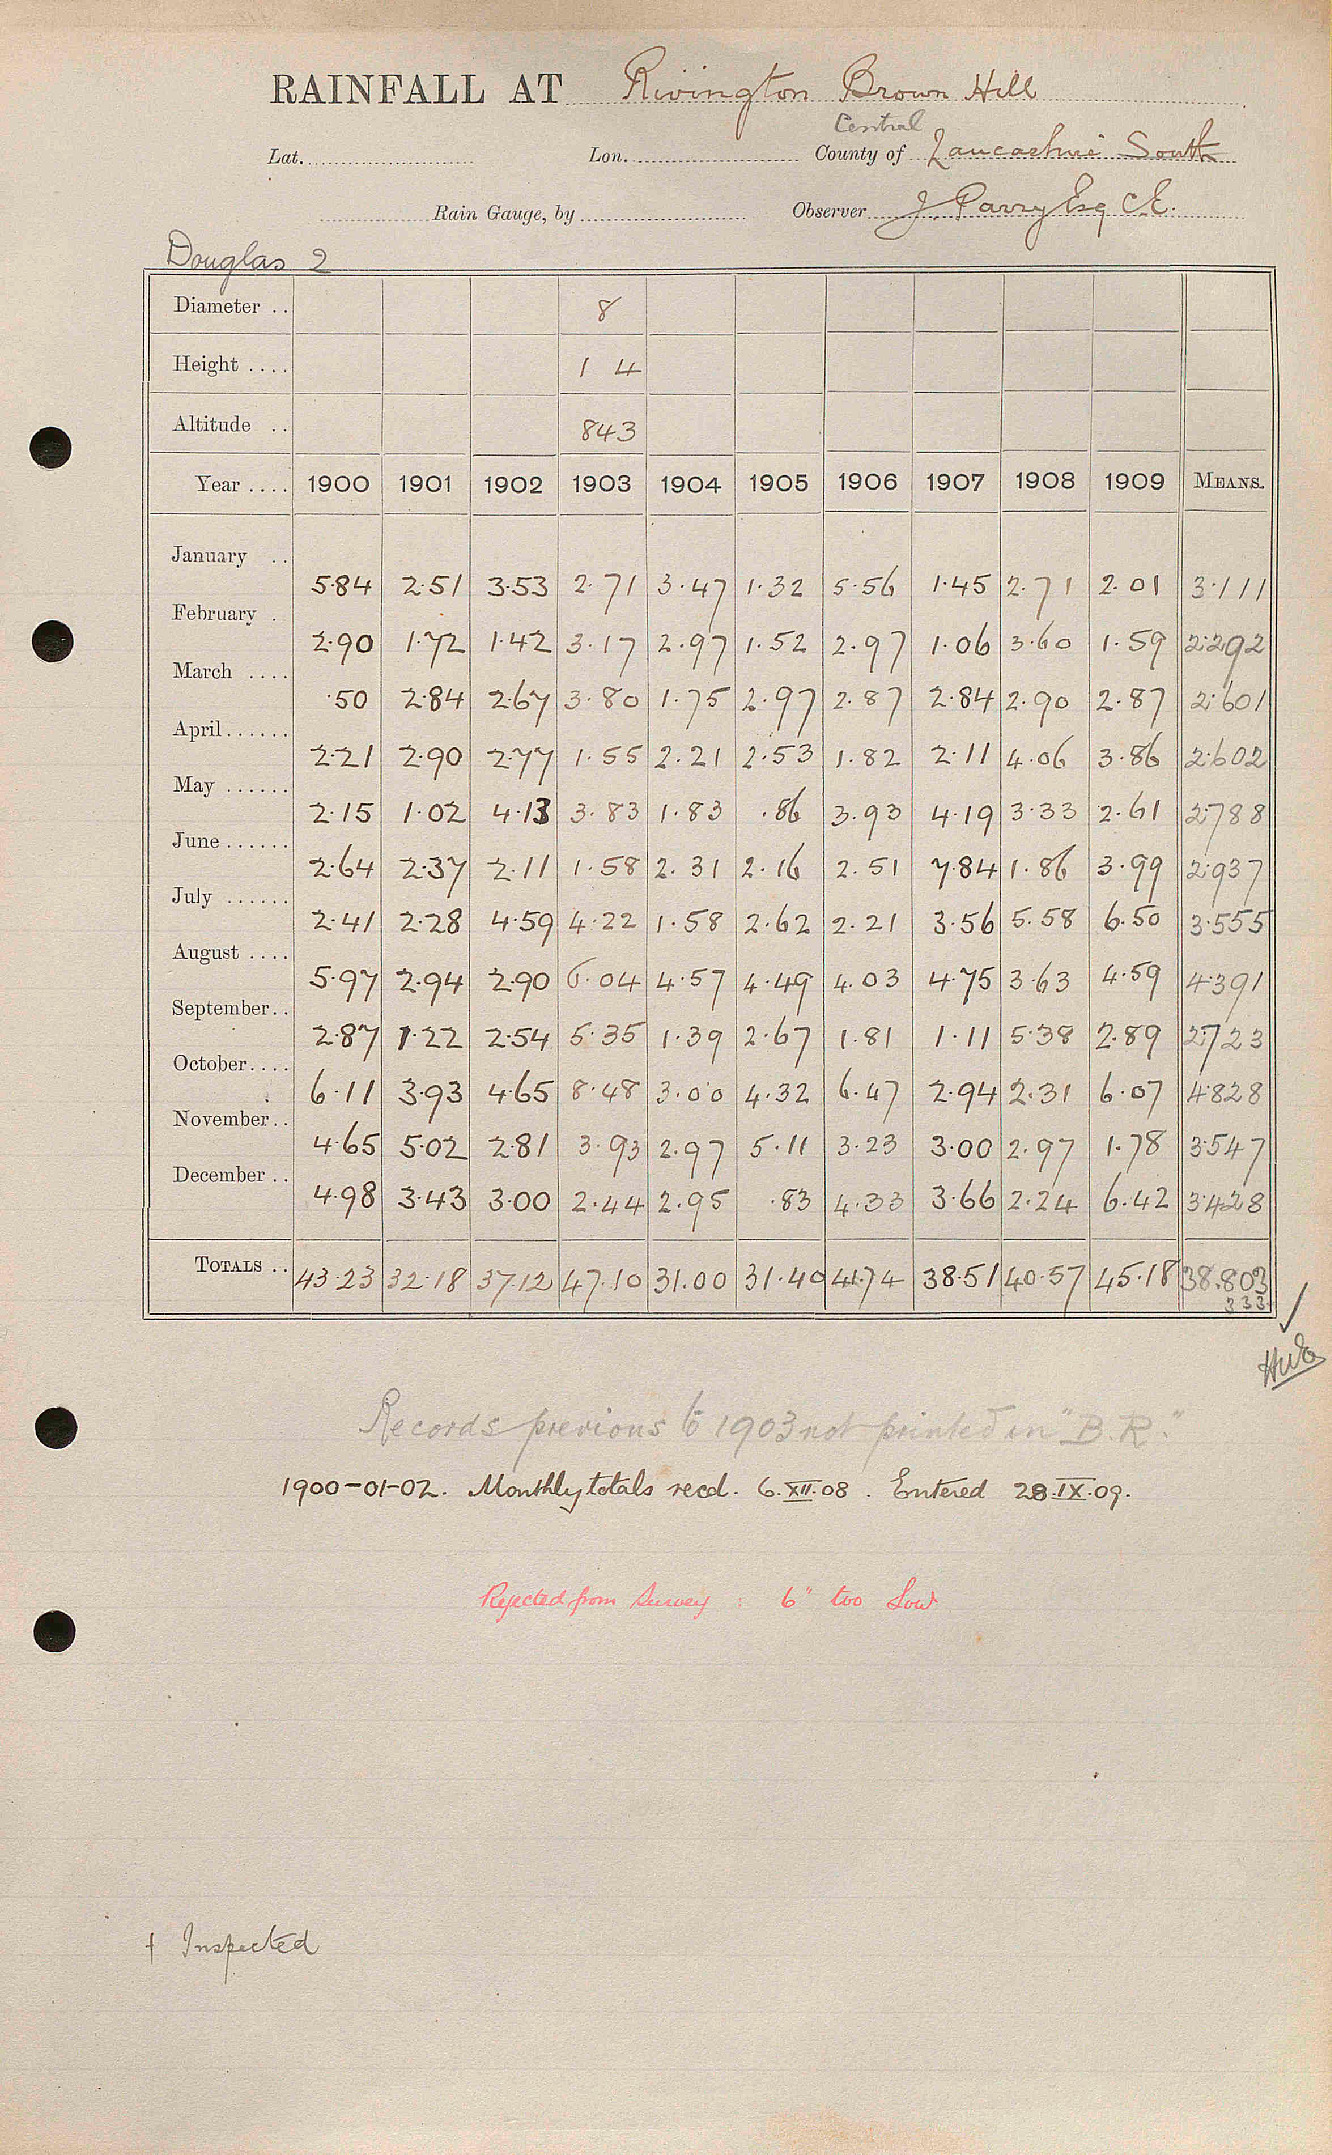 RAINFALL AT Rivington Brown Hill
Central
Lat. Lon. County of Lancashire South
Rain Gauge, by Observer J. Parry Esq C.E.
Douglas 2
Diameter .. 8
Height .... 1 4
Altitude .. 843
Year .... 1900 1901 1902 1903 1904 1905 1906 1907 1908 1909 MEANS.
January .. 5.84 2.51 3.53 2.71 3.47 1.32 5.56 1.45 2.71 2.01 3.111
February . 2.90 1.72 1.42 3.17 2.97 1.52 2.97 1.06 3.60 1.59 2.292
March .... .50 2.84 2.67 3.80 1.75 2.97 2.87 2.84 2.90 2.87 2.601
April...... 2.21 2.90 2.77 1.55 2.21 2.53 1.82 2.11 4.06 3.86 2.602
May ...... 2.15 1.02 4.13 3.83 1.83 .86 3.93 4.19 3.33 2.61 2.788
June...... 2.64 2.37 2.11 1.58 2.31 2.16 2.51 7.84 1.86 3.99 2.937
July ...... 2.41 2.28 4.59 4.22 1.58 2.62 2.21 3.56 5.58 6.50 3.555
August .... 5.97 2.94 2.90 6.04 4.57 4.49 4.03 4.75 3.63 4.59 4.391
September.. 2.87 1.22 2.54 5.35 1.39 2.67 1.81 1.11 5.38 2.89 2.723
October.... 6.11 3.93 4.65 8.48 3.00 4.32 6.47 2.94 2.31 6.07 4.828
November.. 4.65 5.02 2.81 3.93 2.97 5.11 3.23 3.00 2.97 1.78 3.547
December .. 4.98 3.43 3.00 2.44 2.95 .83 4.33 3.66 2.24 6.42 3.428
TOTALS .. 43.23 32.18 37.12 47.10 31.00 31.40 41.74 38.51 40.57 45.18 38.803
333
Records previous to 1903 not printed in "B.R."
1900-01-02. Monthly totals recd. 6.XII.08. Entered 28.IX.09.
Rejected from Survey : 6" too low
† Inspected